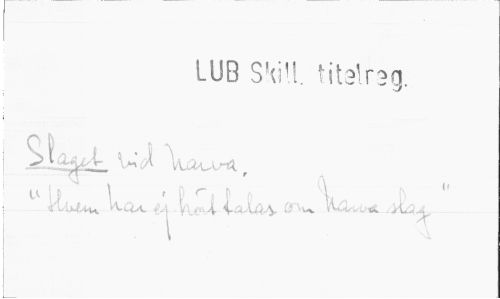 LUB Skill. titelreg.
Slaget vid Narva.
"Hvem har ej hört talas om Narva slag"